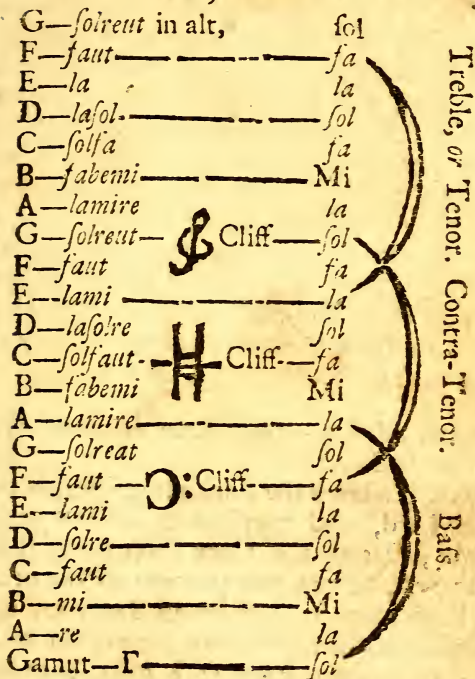 G—ſolreut in alt, ſol
F—faut——————fa
E—la la
D—laſol—————ſol
C—ſolfa fa
B—fabemi————Mi
A—lamire la
G—ſolreut— Cliff—ſol
F—faut fa
E—lami —————la
D—laſolre ſol
C—ſolfaut- Cliff—fa
B—fabemi Mi
A—lamire————la
G—ſolreat ſol
F—faut — Cliff—fa
E—lami la
D—ſolre—————ſol
C—faut fa
B—mi——————Mi
A—re la
Gamut—Γ————ſol
Treble, or Tenor. Contra-Tenor. Baſs.